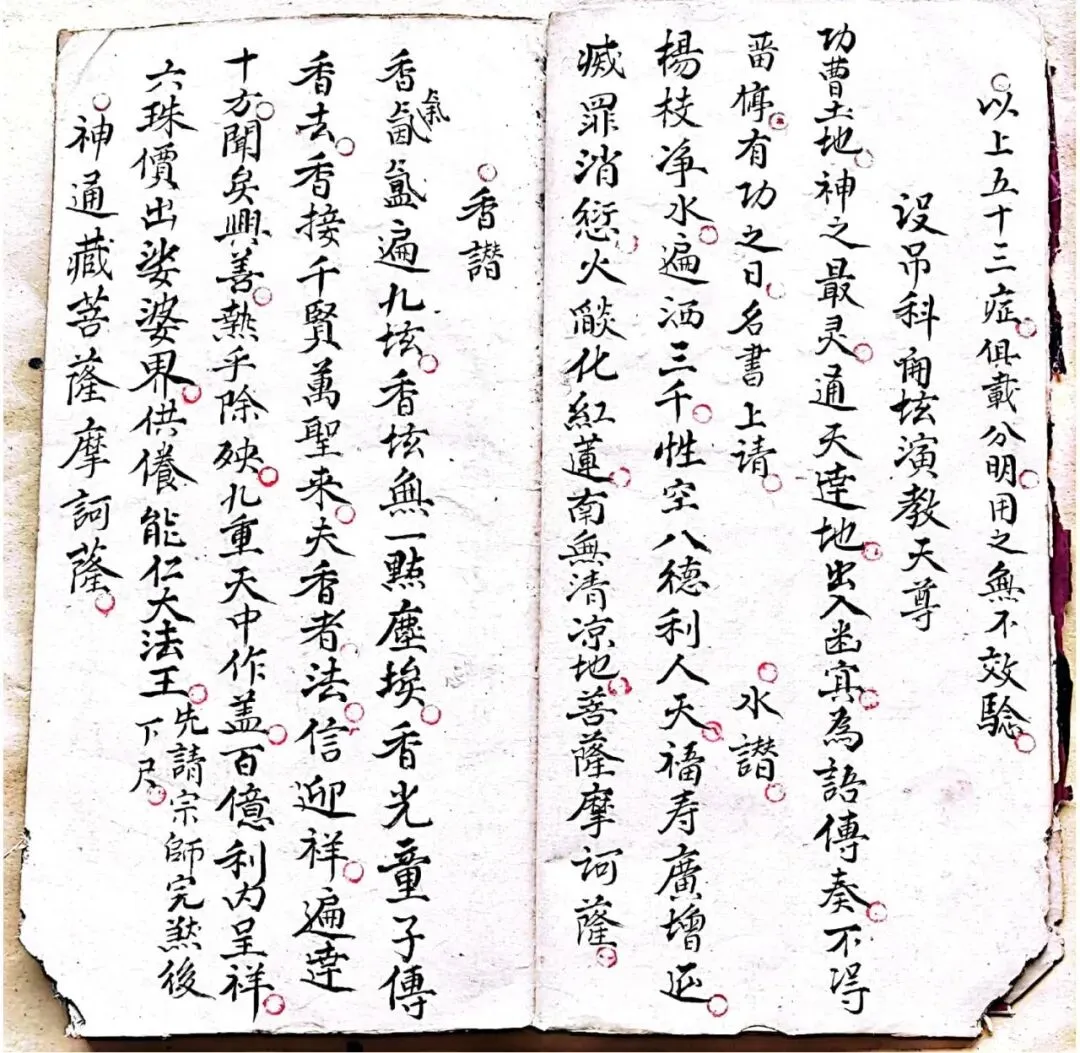 以上五十三症俱載分明用之無不效騐
設吊科 開坛演教天尊
功曹土地神之最灵通天達地出入幽冥為語傳奏不得
畄停有功之日名書上請 水讃
楊枝净水遍洒三千性空八德利人天福寿廣增延
滅罪消愆火燄化紅蓮南無清凉地菩薩摩訶薩
香讃
香氣氤氳遍九坛香坛無一點塵埃香光童子傳
香去香接千賢萬聖来夫香者法信迎祥遍達
十方聞矣興善熱乎除殃九重天中作盖百億利内呈祥
六珠價出娑婆界供養能仁大法王先請宗師完然後
下尺
神通藏菩薩摩訶薩